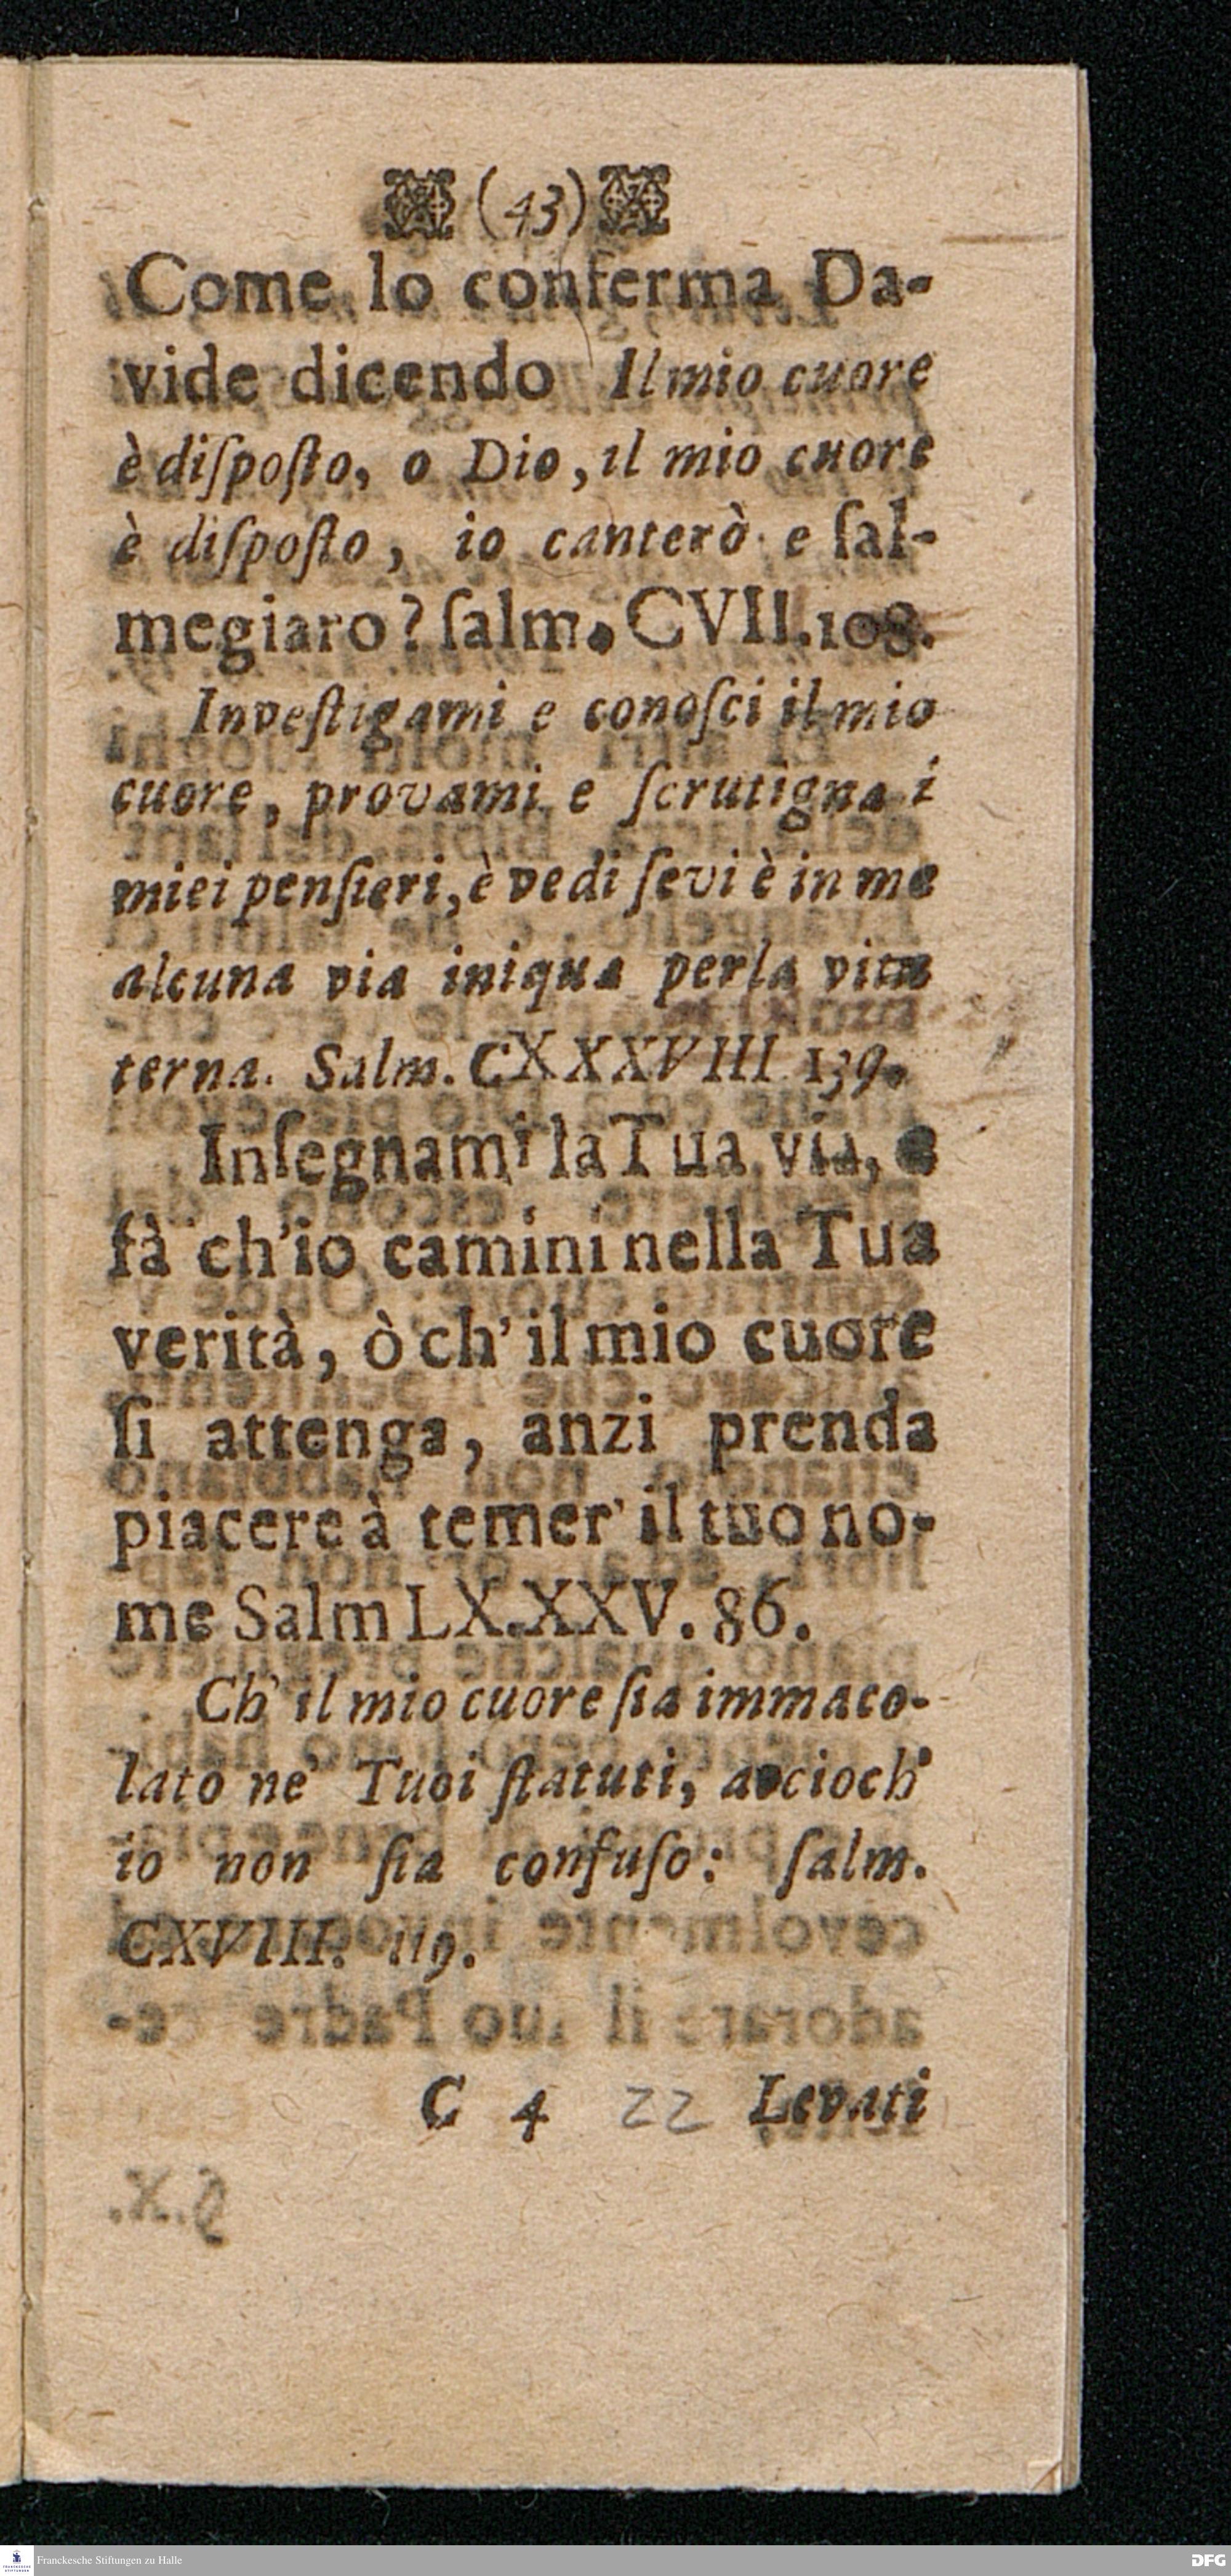 (43)
Come lo conferma Da-
vide dicendo Il mio cuore
è diſpoſto, o Dio, il mio cuore
è diſpoſto, io canterò e ſal-
megiaro? ſalm. CVII. 108.
Inveſtigami e conoſci il mio
cuore, provami e ſcrutigna i
miei penſieri, è vedi ſevi è in me
alcuna via iniqua perla vita
terna. Salm. CXXXVIII 139.
Inſegnami la Tua via, e
fà ch'io camini nella Tua
verità, ò ch' il mio cuore
ſi attenga, anzi prenda
piacere à temer' il tuo no-
me Salm LX.XXV. 86.
Ch' il mio cuore ſia immaco-
lato ne' Tuoi ſtatuti, accioch'
io non ſia confuſo: ſalm.
CXVIII. 119.
C 4 22 Levati
Franckesche Stiftungen zu Halle
DFG